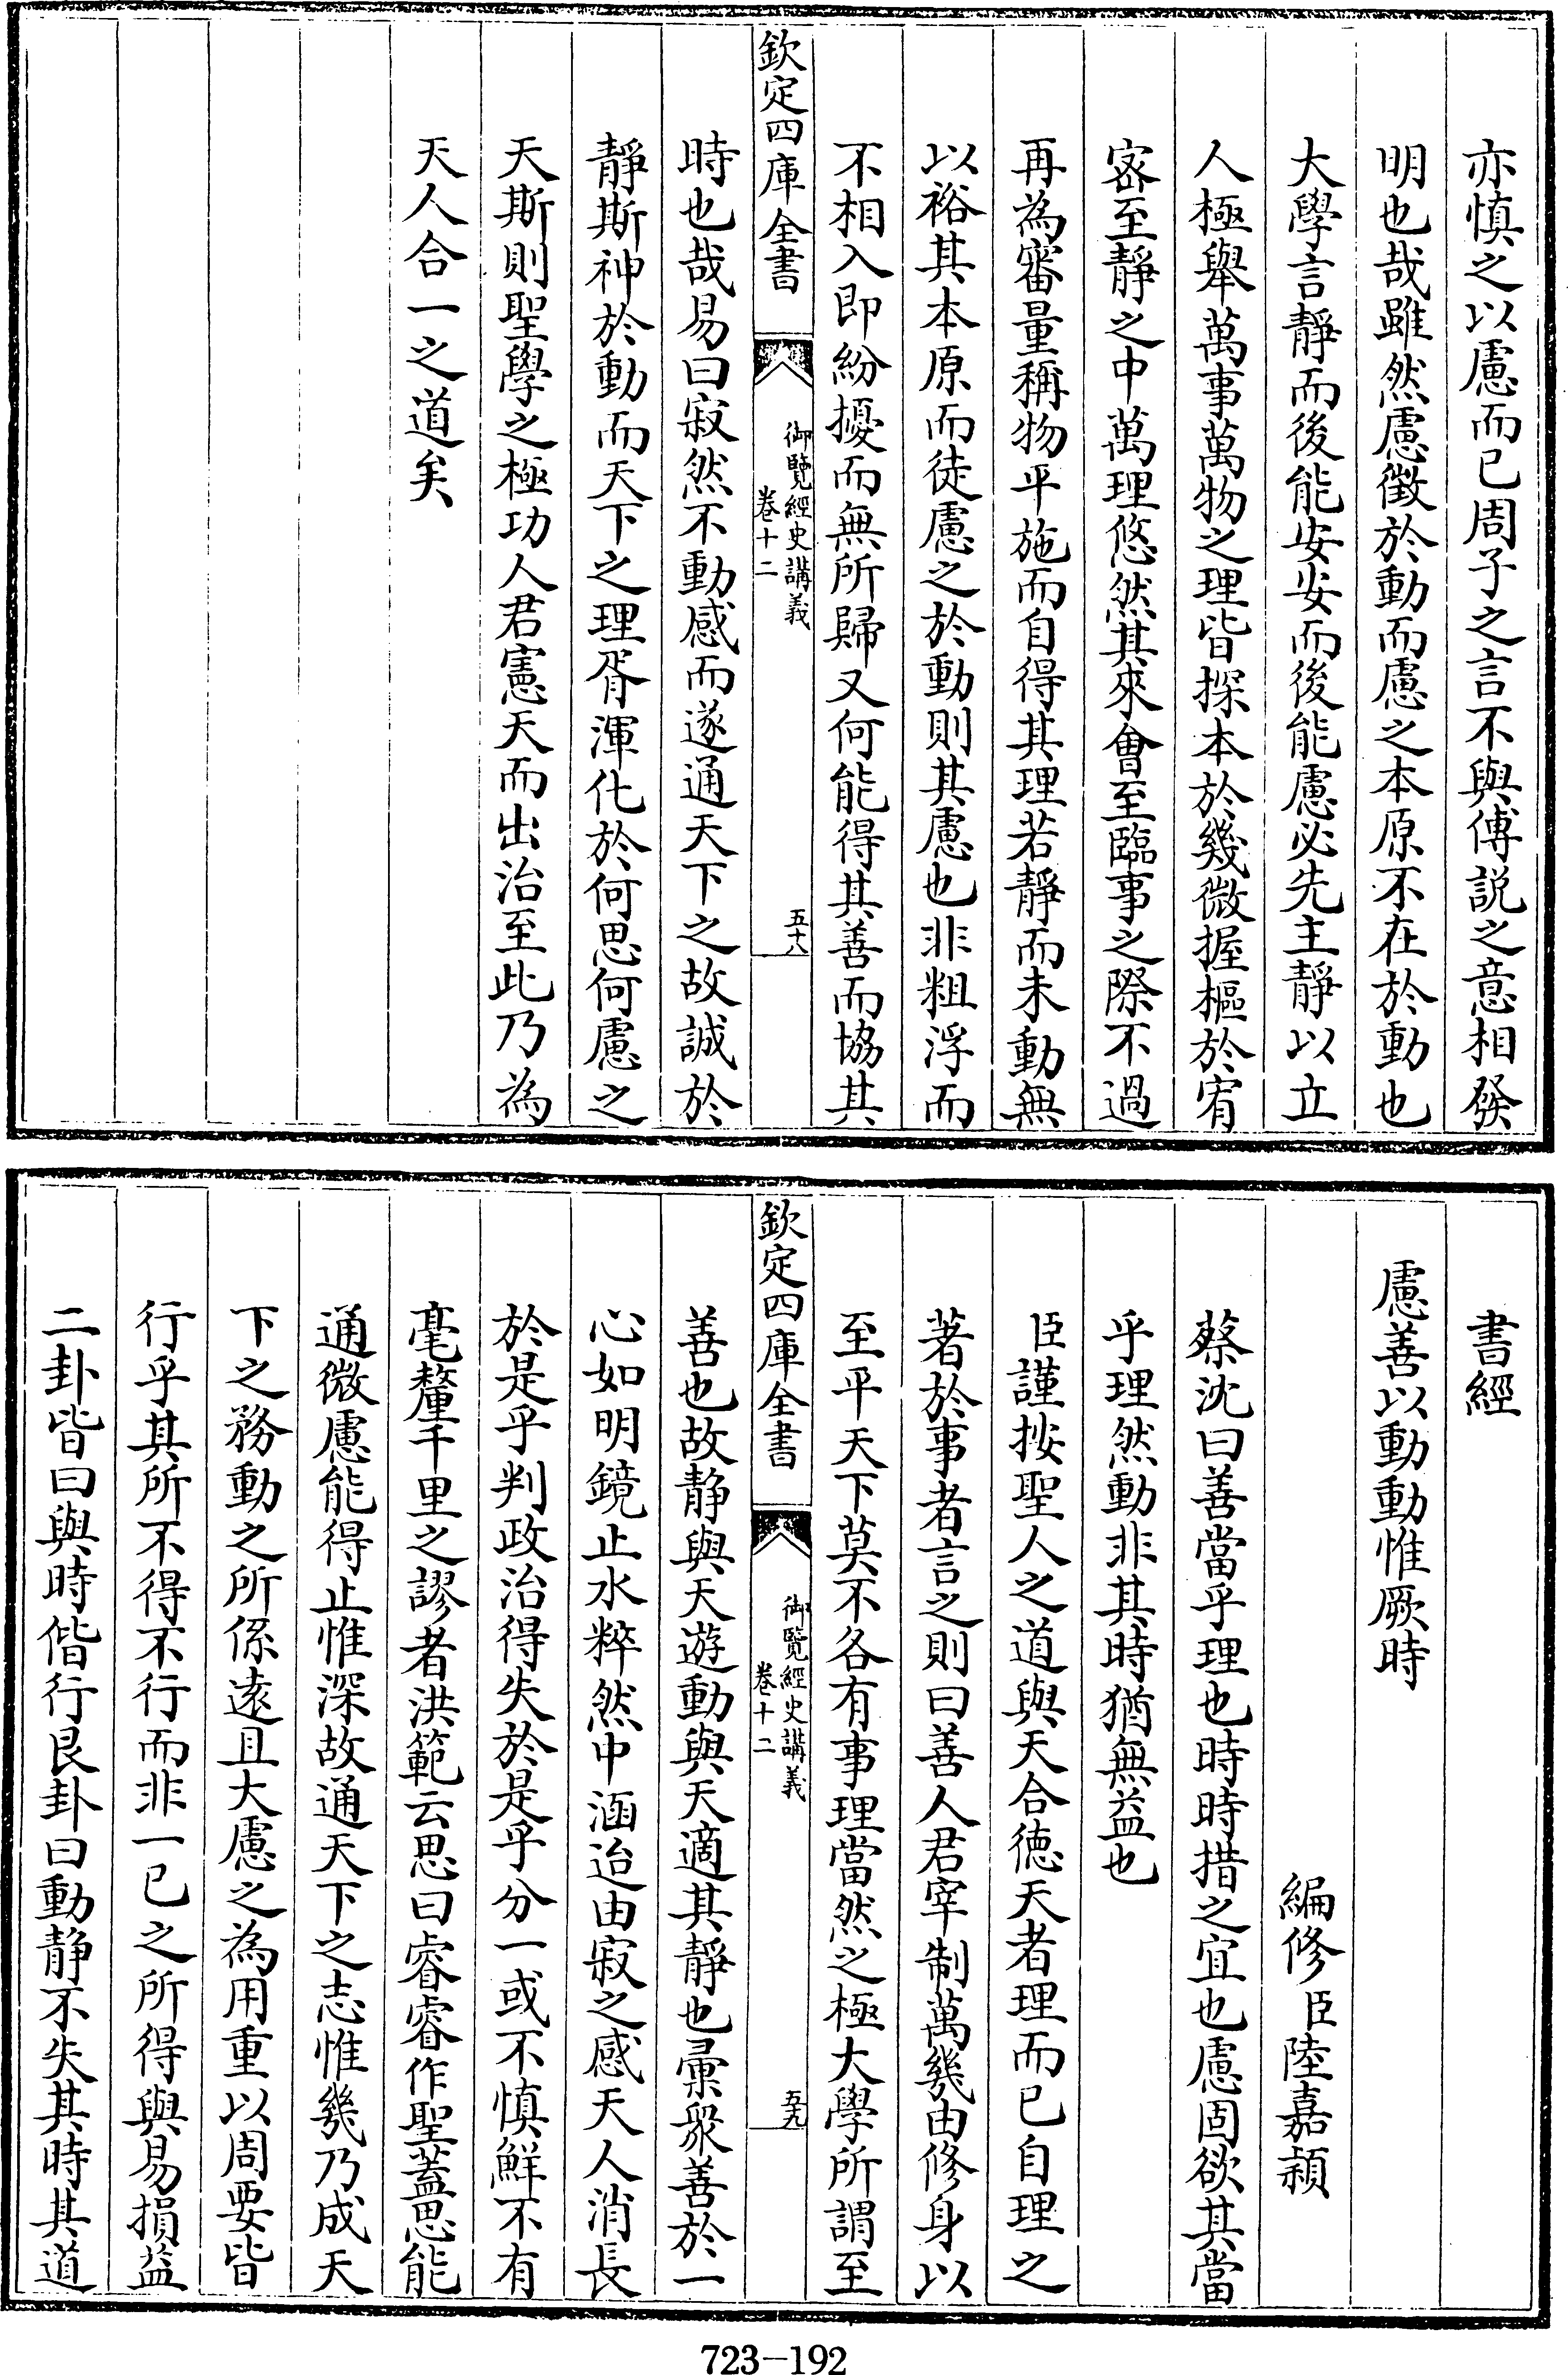 亦慎之以慮而已周子之言不與傅説之意相發
明也哉雖然慮徴於動而慮之本原不在於動也
大學言靜而後能安安而後能慮必先主靜以立
人極舉萬事萬物之理皆探本於幾微握樞於宥
宻至靜之中萬理悠然其來會至臨事之際不過
再為審量稱物平施而自得其理若靜而未動無
以裕其本原而徒慮之於動則其慮也非粗浮而
不相入即紛擾而無所歸又何能得其善而協其
欽定四庫全書
御覽經史講義
卷十二
五十八
時也哉易曰寂然不動感而遂通天下之故誠於
靜斯神於動而天下之理胥渾化於何思何慮之
天斯則聖學之極功人君憲天而出治至此乃為
天人合一之道矣
書經
慮善以動動惟厥時
編修臣陸嘉穎
蔡沈曰善當乎理也時時措之宜也慮固欲其當
乎理然動非其時猶無益也
臣謹按聖人之道與天合徳天者理而已自理之
著於事者言之則曰善人君宰制萬幾由修身以
至平天下莫不各有事理當然之極大學所謂至
欽定四庫全書
御覽經史講義
卷十二
五十九
善也故静與天遊動與天適其靜也彚衆善於一
心如明鏡止水粹然中涵迨由寂之感天人消長
於是乎判政治得失於是乎分一或不慎鮮不有
毫釐千里之謬者洪範云思曰睿睿作聖蓋思能
通微慮能得止惟深故通天下之志惟幾乃成天
下之務動之所係逺且大慮之為用重以周要皆
行乎其所不得不行而非一已之所得與易損益
二卦皆曰與時偕行艮卦曰動静不失其時其道
723-192